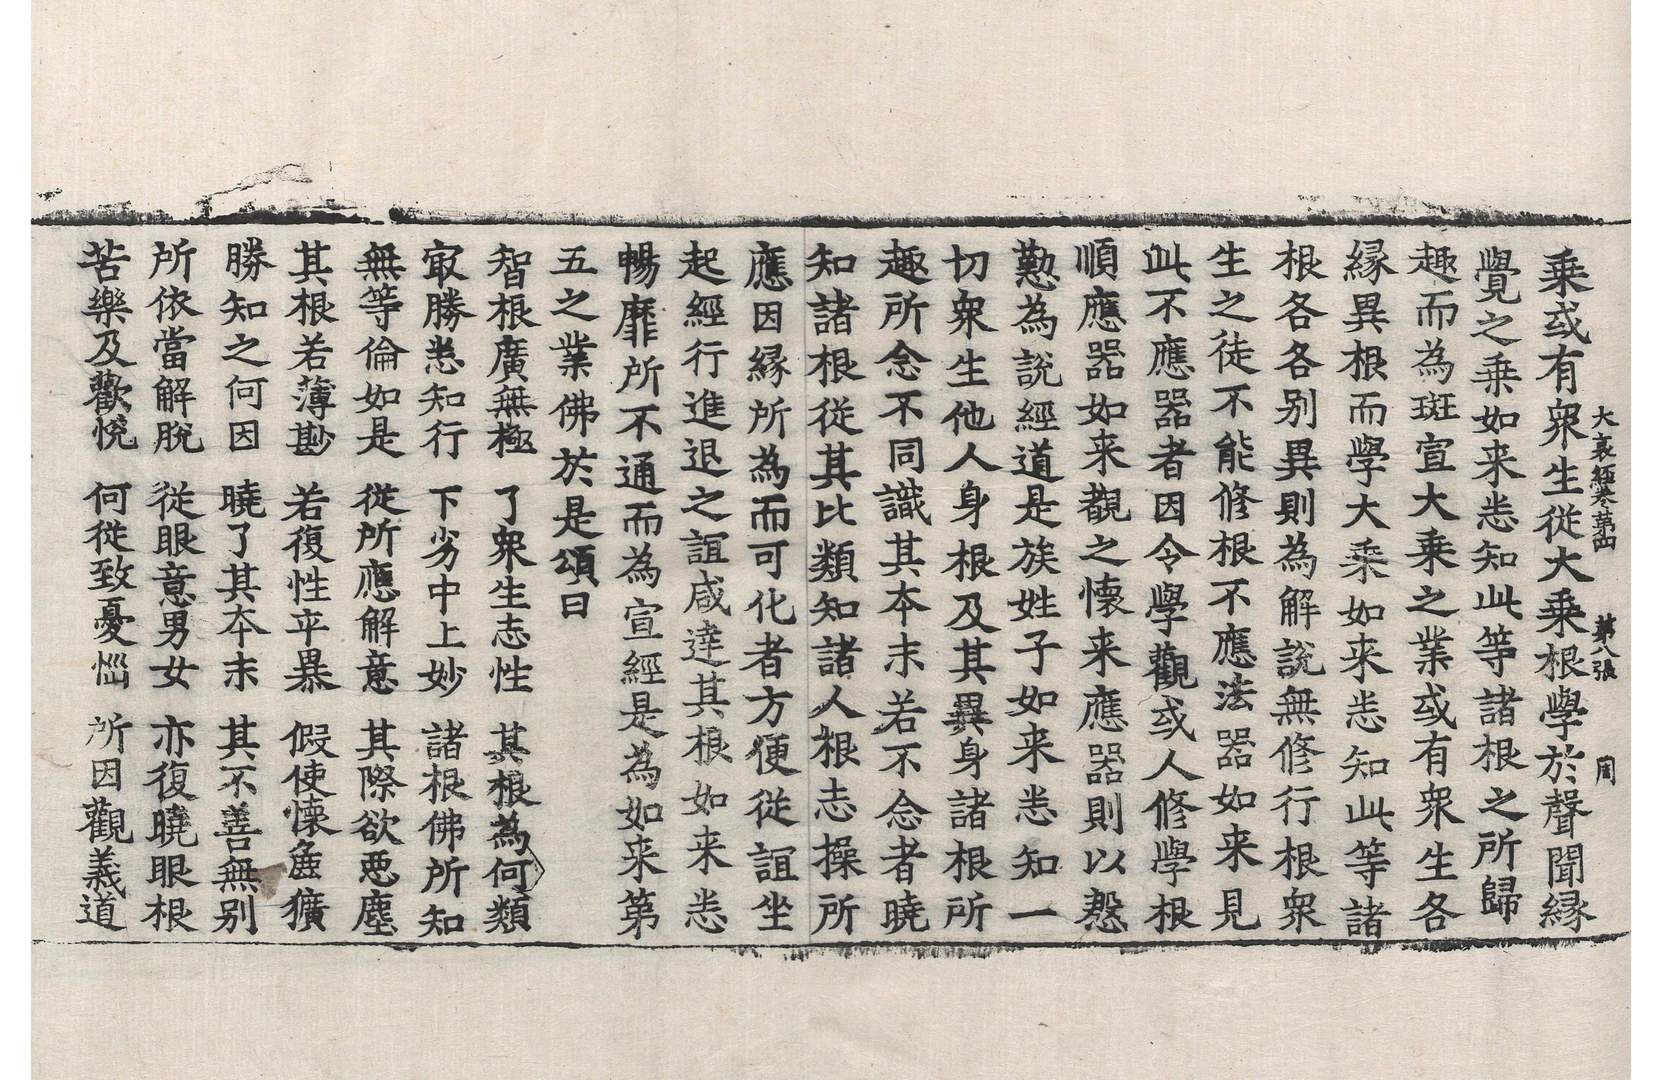 大哀經卷第四　第八張　周
乗或有衆生從大乗根學於聲聞縁
覺之乗如来悉知此等諸根之所歸
趣而為斑宣大乗之業或有衆生各
縁異根而學大乗如来悉知此等諸
根各各别異則為解說無修行根衆
生之徒不能修根不應法器如来見
此不應器者因令學觀或人修學根
順應器如来觀之懷来應器則以慇
懃為說經道是族姓子如来悉知一
切衆生他人身根及其異身諸根所
趣所念不同識其本末若不念者曉
知諸根從其比類知諸人根志操所
應因縁所為而可化者方便從誼坐
起經行進退之誼咸達其根如来悉
暢靡所不通而為宣經是為如来第
五之業佛於是頌曰
智根廣無極　了衆生志性　其根為何類
㝡勝悉知行　下劣中上妙　諸根佛所知
無等倫如是　從所應解意　其際欲惡塵
其根若薄尠　若復性平暴　假使懷麁獷
勝知之何因　曉了其本末　其不善無别
所依當解脫　從眼意男女　亦復曉眼根
苦樂及歡悅　何從致憂惱　所因觀義道